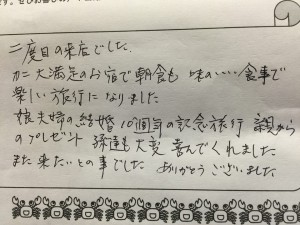 二度目の来店でした。
カニ大満足のお宿で朝食も味のいい、食事で
楽しい旅行になりました
娘夫婦の結婚10周年の記念旅行 親から
のプレゼント 孫達も大変喜んでくれました
また来たいとの事でした ありがとうございました